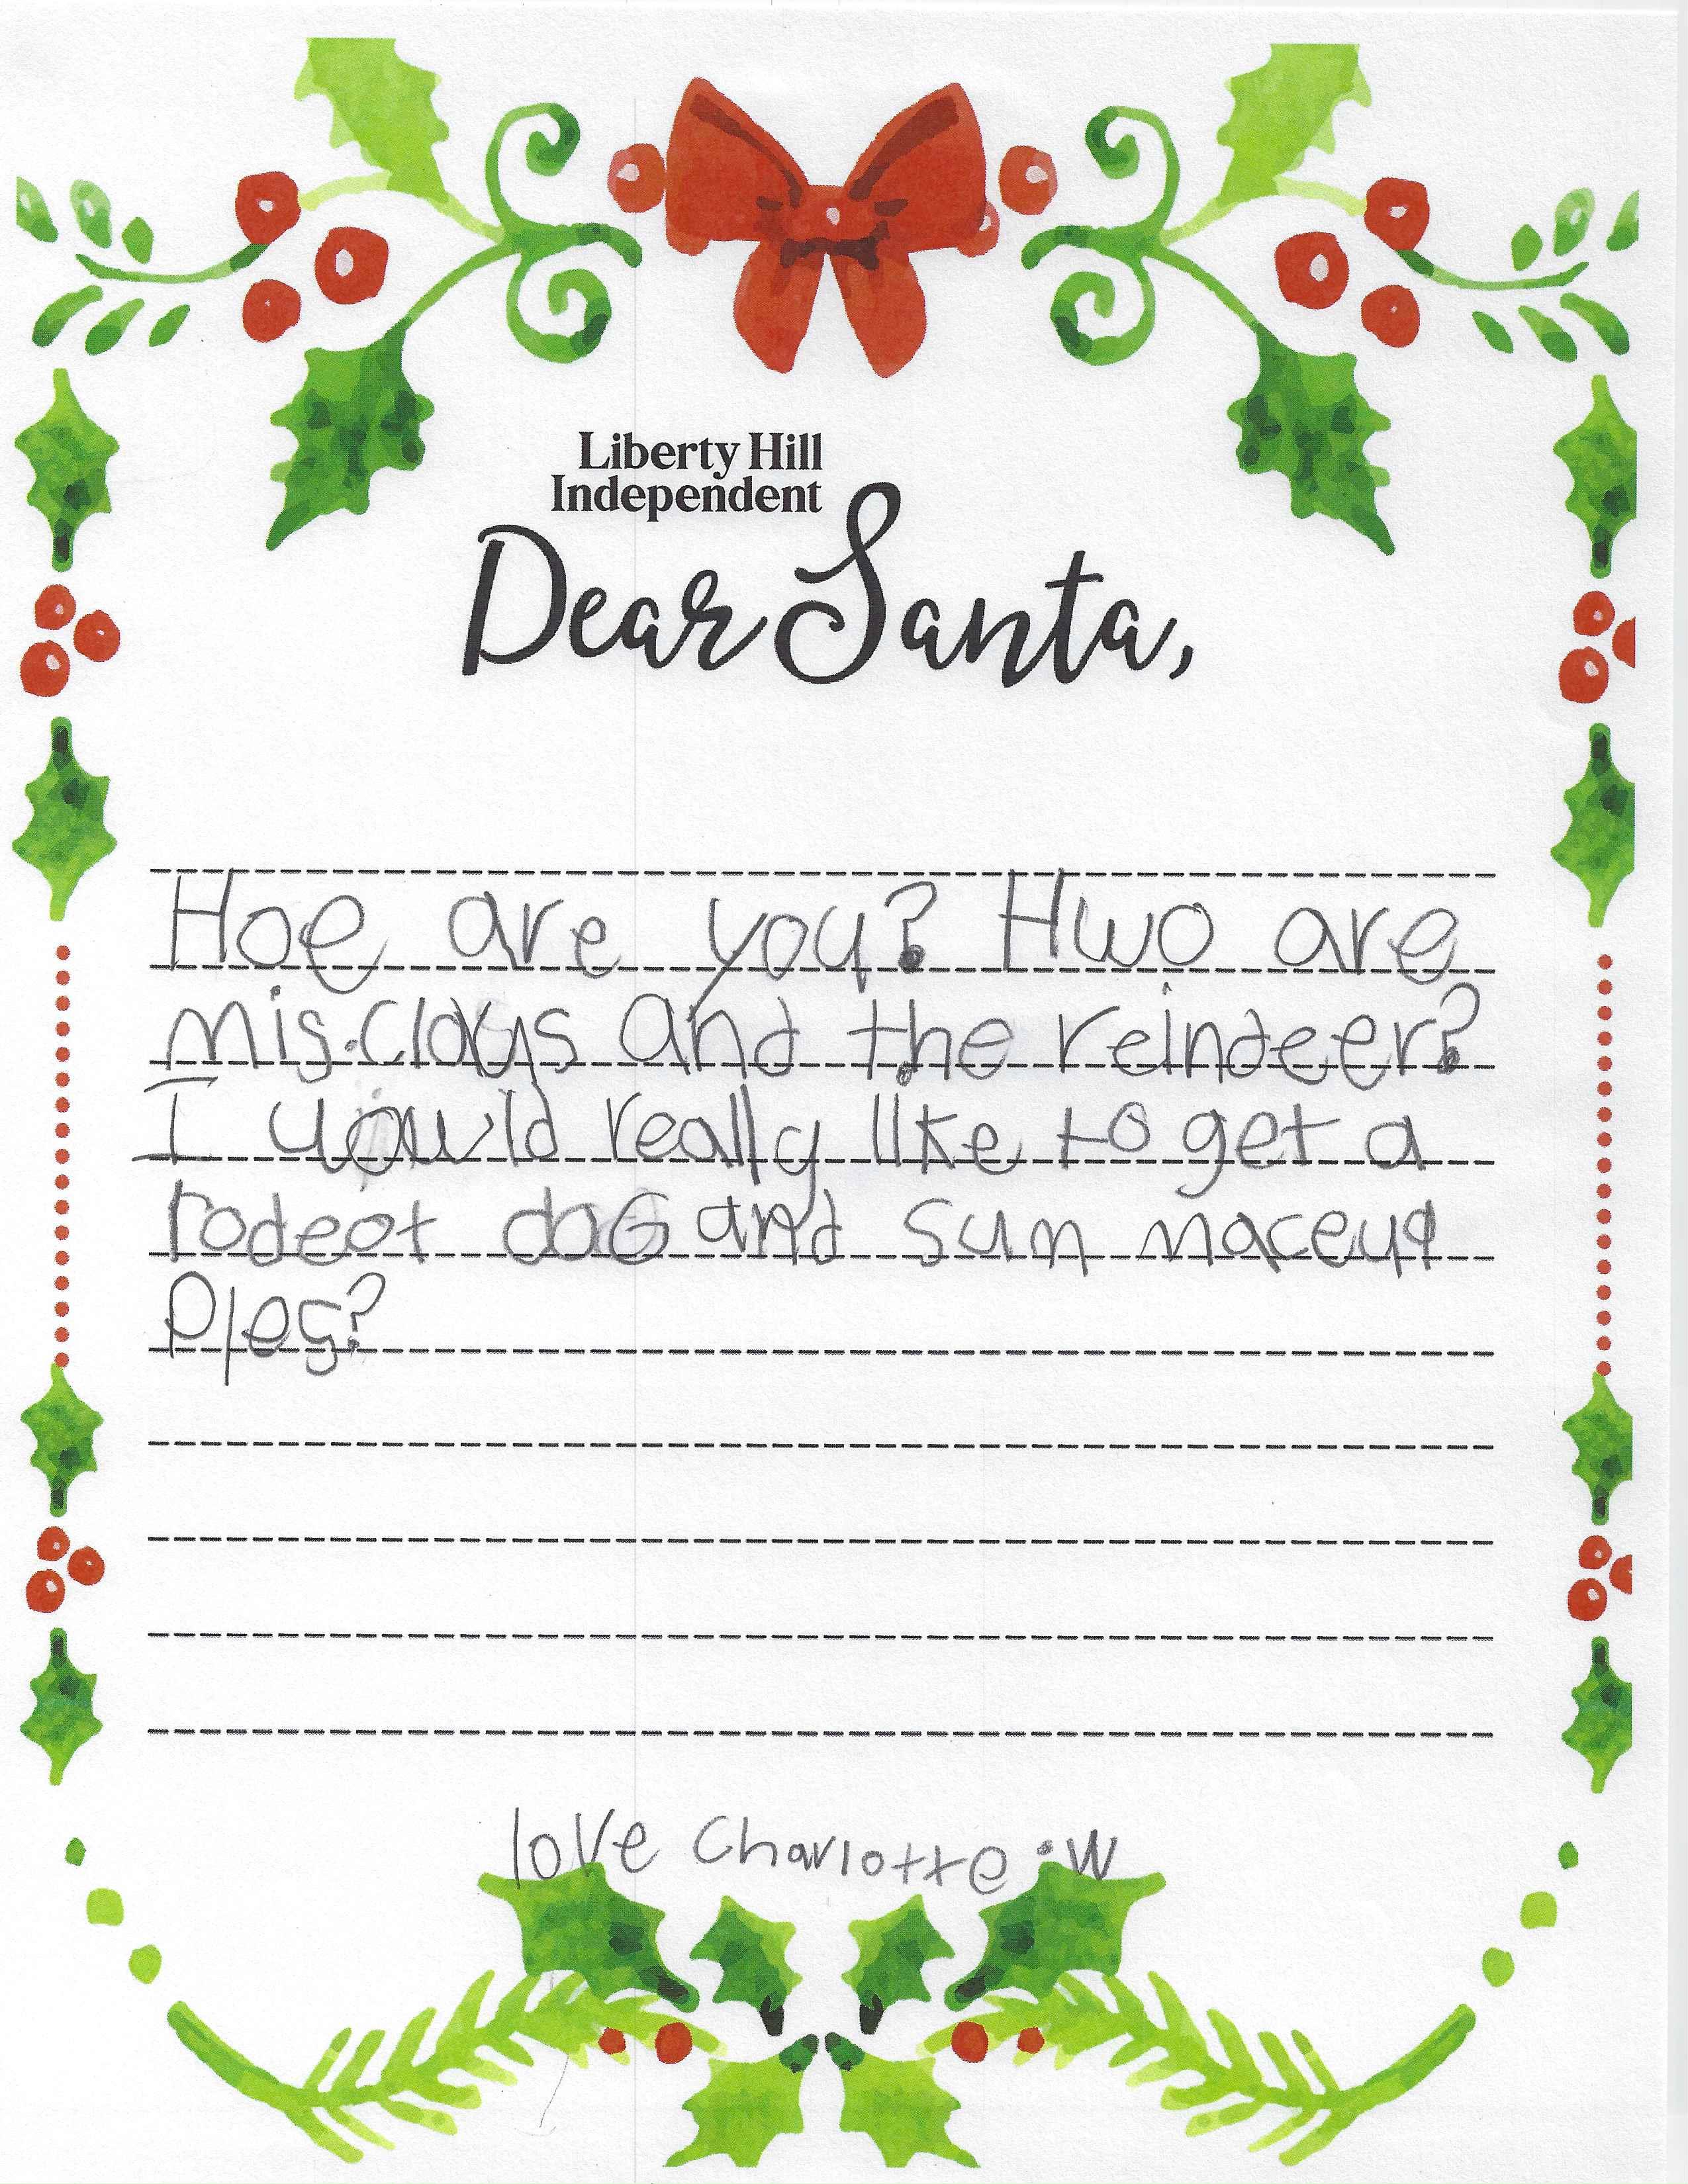 Liberty Hill
Independent
Dear Santa,
Hoe are you? Hwo are
mis.claus and the reindeer?
I would really like to get a
rodeot doG and sum maceup
Ples?
love Charlotte .W